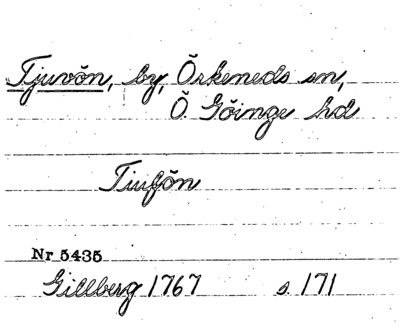 Tjuvön, by, Örkeneds sn,
Ö. Göinge hd
Tiufön
Nr 5435
Gillberg 1767 s 171